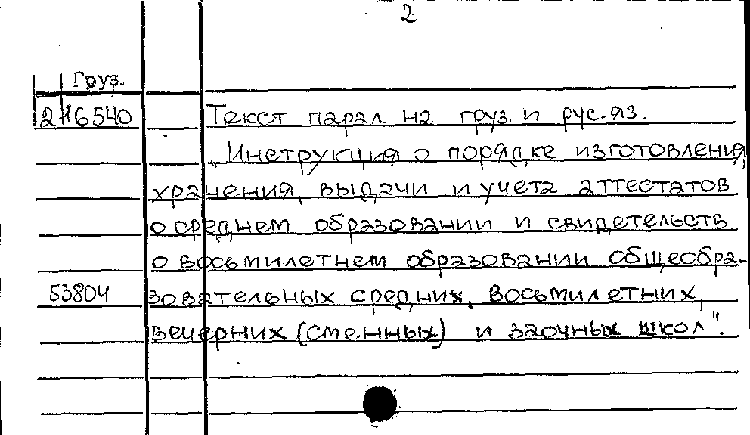 2
Груз.
2116540 Текст парал. на груз. и рус. яз.
„Инструкция о порядке изготовления,
хранения, выдачи и учета аттестатов
о среднем образовании и свидетельств
о восьмилетнем образовании общеобра-
53804 зовательных средних, восьмилетних,
вечерних (сменных) и заочных школ".